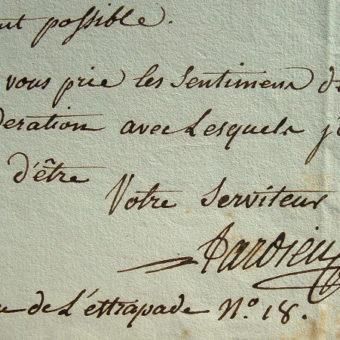 nt possible.
vous prie les Sentimens d
deration avec Lesquels j'
d'être
Votre Serviteur
Tardieu
de L'estrapade N.o 18.